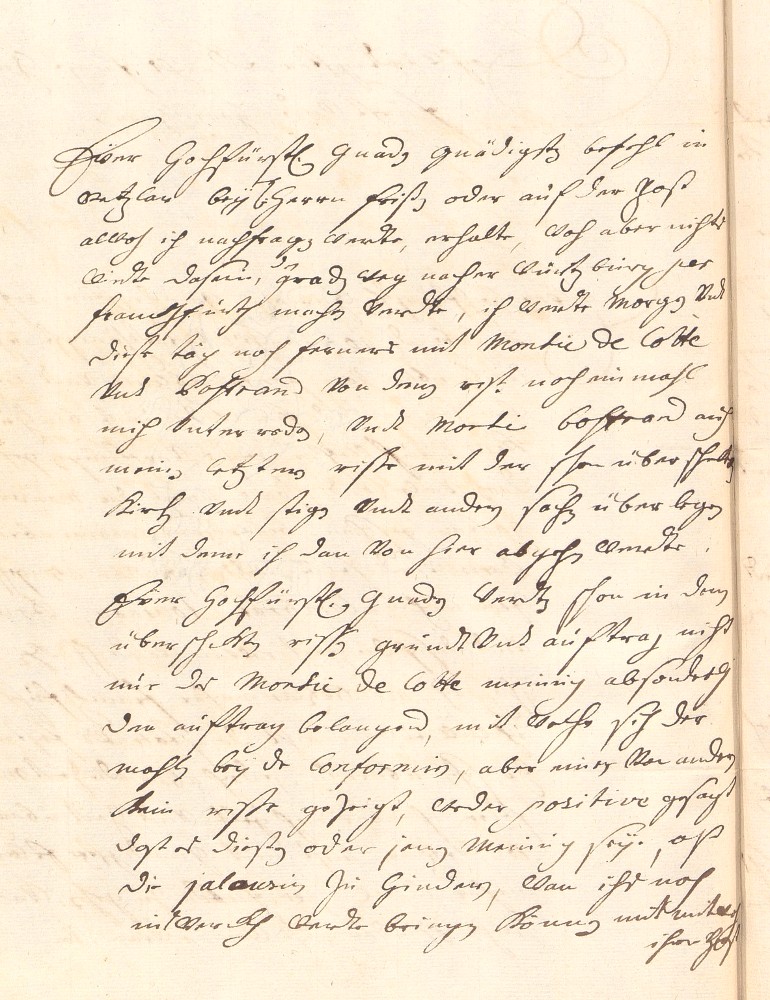 Euer Hochfürstl. gnadn gnädigstn befehl in
Wetzlar beÿ H. Herrn frißn oder auf der Post
alwoh ich nachfragn werdte, erhalte, woh aber nichts
wirdte dasein, gradn weg nacher Würtzburg per
franckhfurth machn werdte, ich werdte Morgn Undt
diese täg noch ferners mit Monsie de Cotte
Undt Bofrand Von denen riß noch ein mahl
mich Unter redn, Undt Monsi boffrand auch
meine letztere risse mit der schon überschickten
Kirch Undt stign Undt andern sachn über legen
mit deme ich dan Von hier abgehn werdte.
Euer Hochfürstl. gnadn werdtn schon in denen
überschicktn rissn grundt Undt auftrag nicht
nur des Monsie de Cotte meinung absonderlich
den auftrag belangend, mit welche sich der
mahln beÿ de conformirn, aber einer Von andern
kein risse gezeigt, weder positive gesagt
das es diese oder jene Meinung seÿe, als
die jalousie zu hindern, wan ihr noch
in werckh werdte bringn Können mit
ihrer